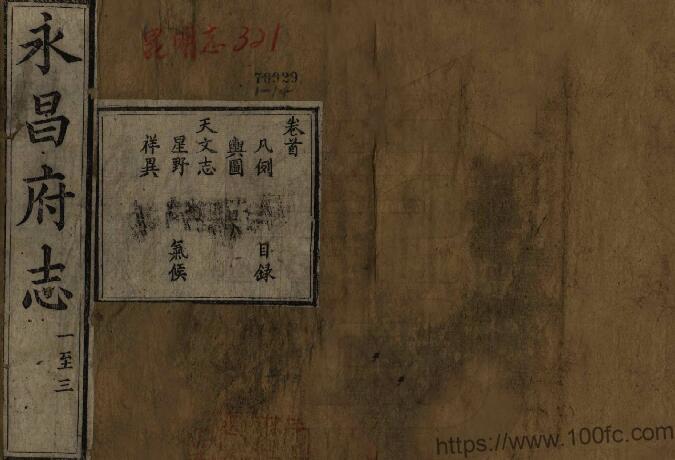 永昌府志
一至三
昆明志321
70929
1-14
卷首
凡例 目録
輿圖
天文志
星野 氣候
祥異
https://www.100fc.com